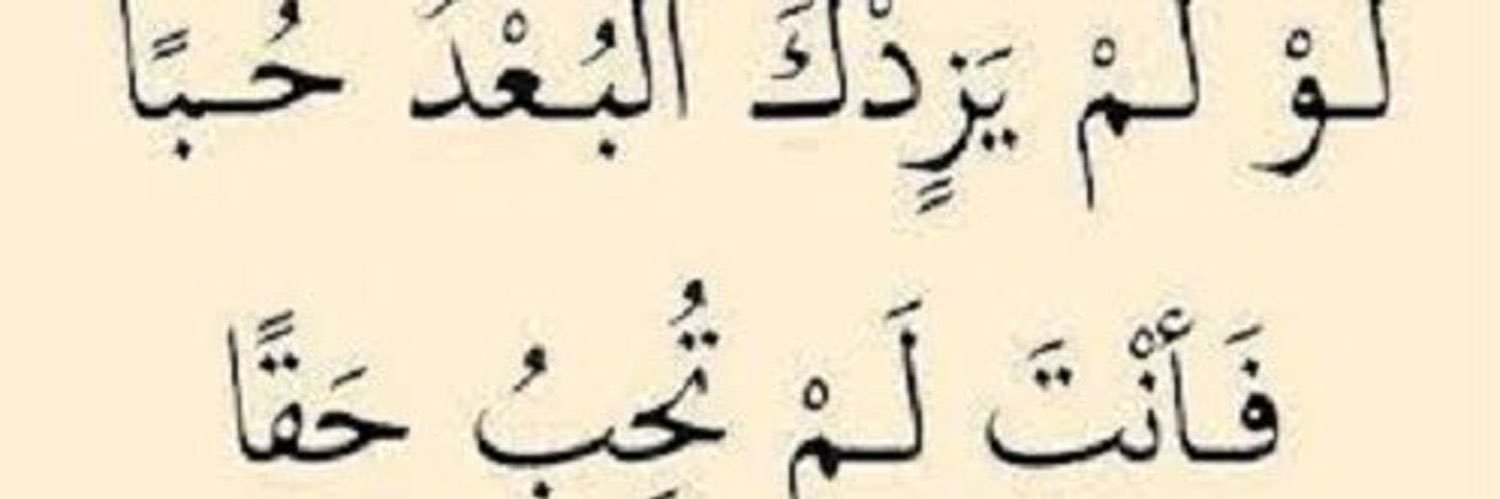 لَوْ لَمْ يَزٍدْكَ الْبُعْدَ حُبًا
فَأَنْتَ لَمْ تُحِبُ حَقًا